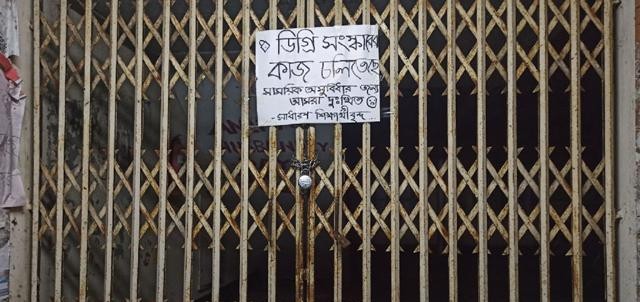 ডিগ্রি সংস্কারের
কাজ চলিতেছে
সাময়িক অসুবিধার জন্যে
আমরা দুঃখিত
- সাধারণ শিক্ষার্থীবৃন্দ